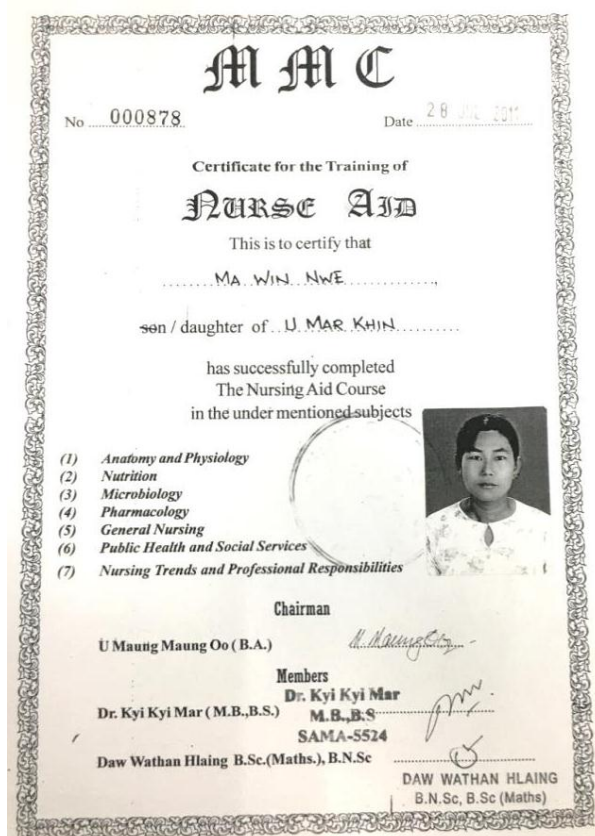 MMC
No 000878
Date 28 2011
Certificate for the Training of
NURSE AID
This is to certify that
MA WIN NWE
son / daughter of U MAR KHIN
has successfully completed
The Nursing Aid Course
in the under mentioned subjects
(1) Anatomy and Physiology
(2) Nutrition
(3) Microbiology
(4) Pharmacology
(5) General Nursing
(6) Public Health and Social Services
(7) Nursing Trends and Professional Responsibilities
Chairman
U Maung Maung Oo ( B.A.)
Members
Dr. Kyi Kyi Mar
Dr. Kyi Kyi Mar ( M.B.,B.S.)
M.B.,B.S
SAMA-5524
Daw Wathan Hlaing B.Sc.(Maths.), B.N.Sc
DAW WATHAN HLAING
B.N.Sc, B.Sc (Maths)